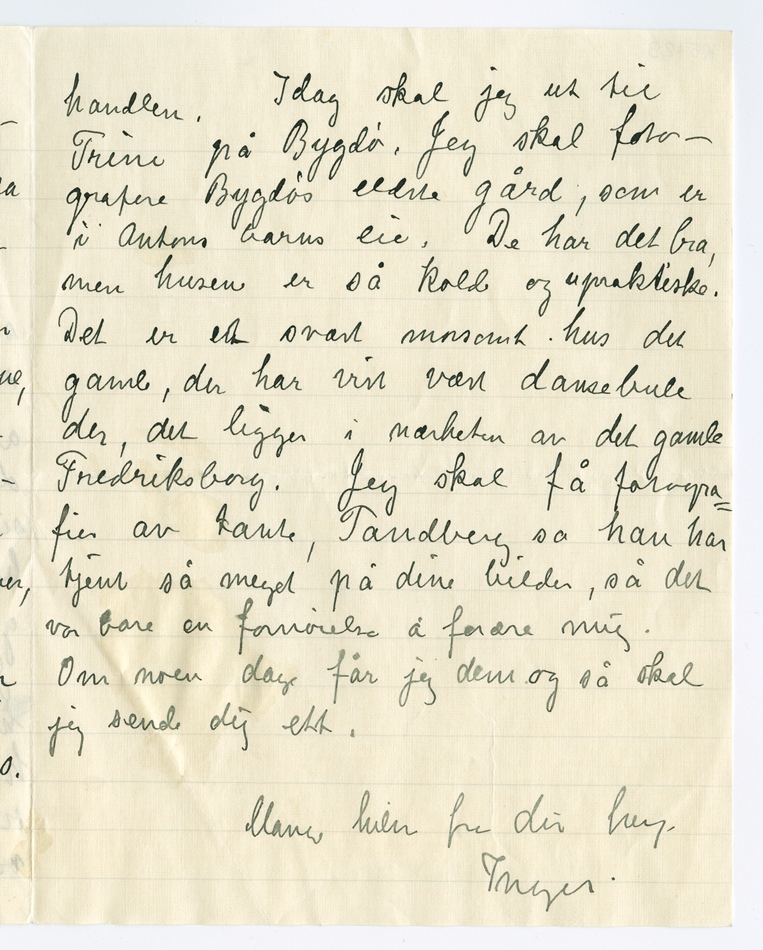 handlen. Idag skal jeg ut til
Trine på Bygdø. Jeg skal foto-
grafere Bygdøs eldste gård, som er
i Antons barns eie. De har det bra,
men husene er så kolde og upraktiske.
Det er et svært morsomt hus det
gamle, der har vist vært dansebule
der, det ligger i nærheten av det gamle
Fredriksborg. Jeg skal få fotogra=
fier av tante, Tandberg sa han har
tjent så meget på dine bilder, så det
var bare en fornøielse å forære mig.
Om noen dage får jeg dem og så skal
jeg sende dig ett.
Mange hilsen fra din
Inger.